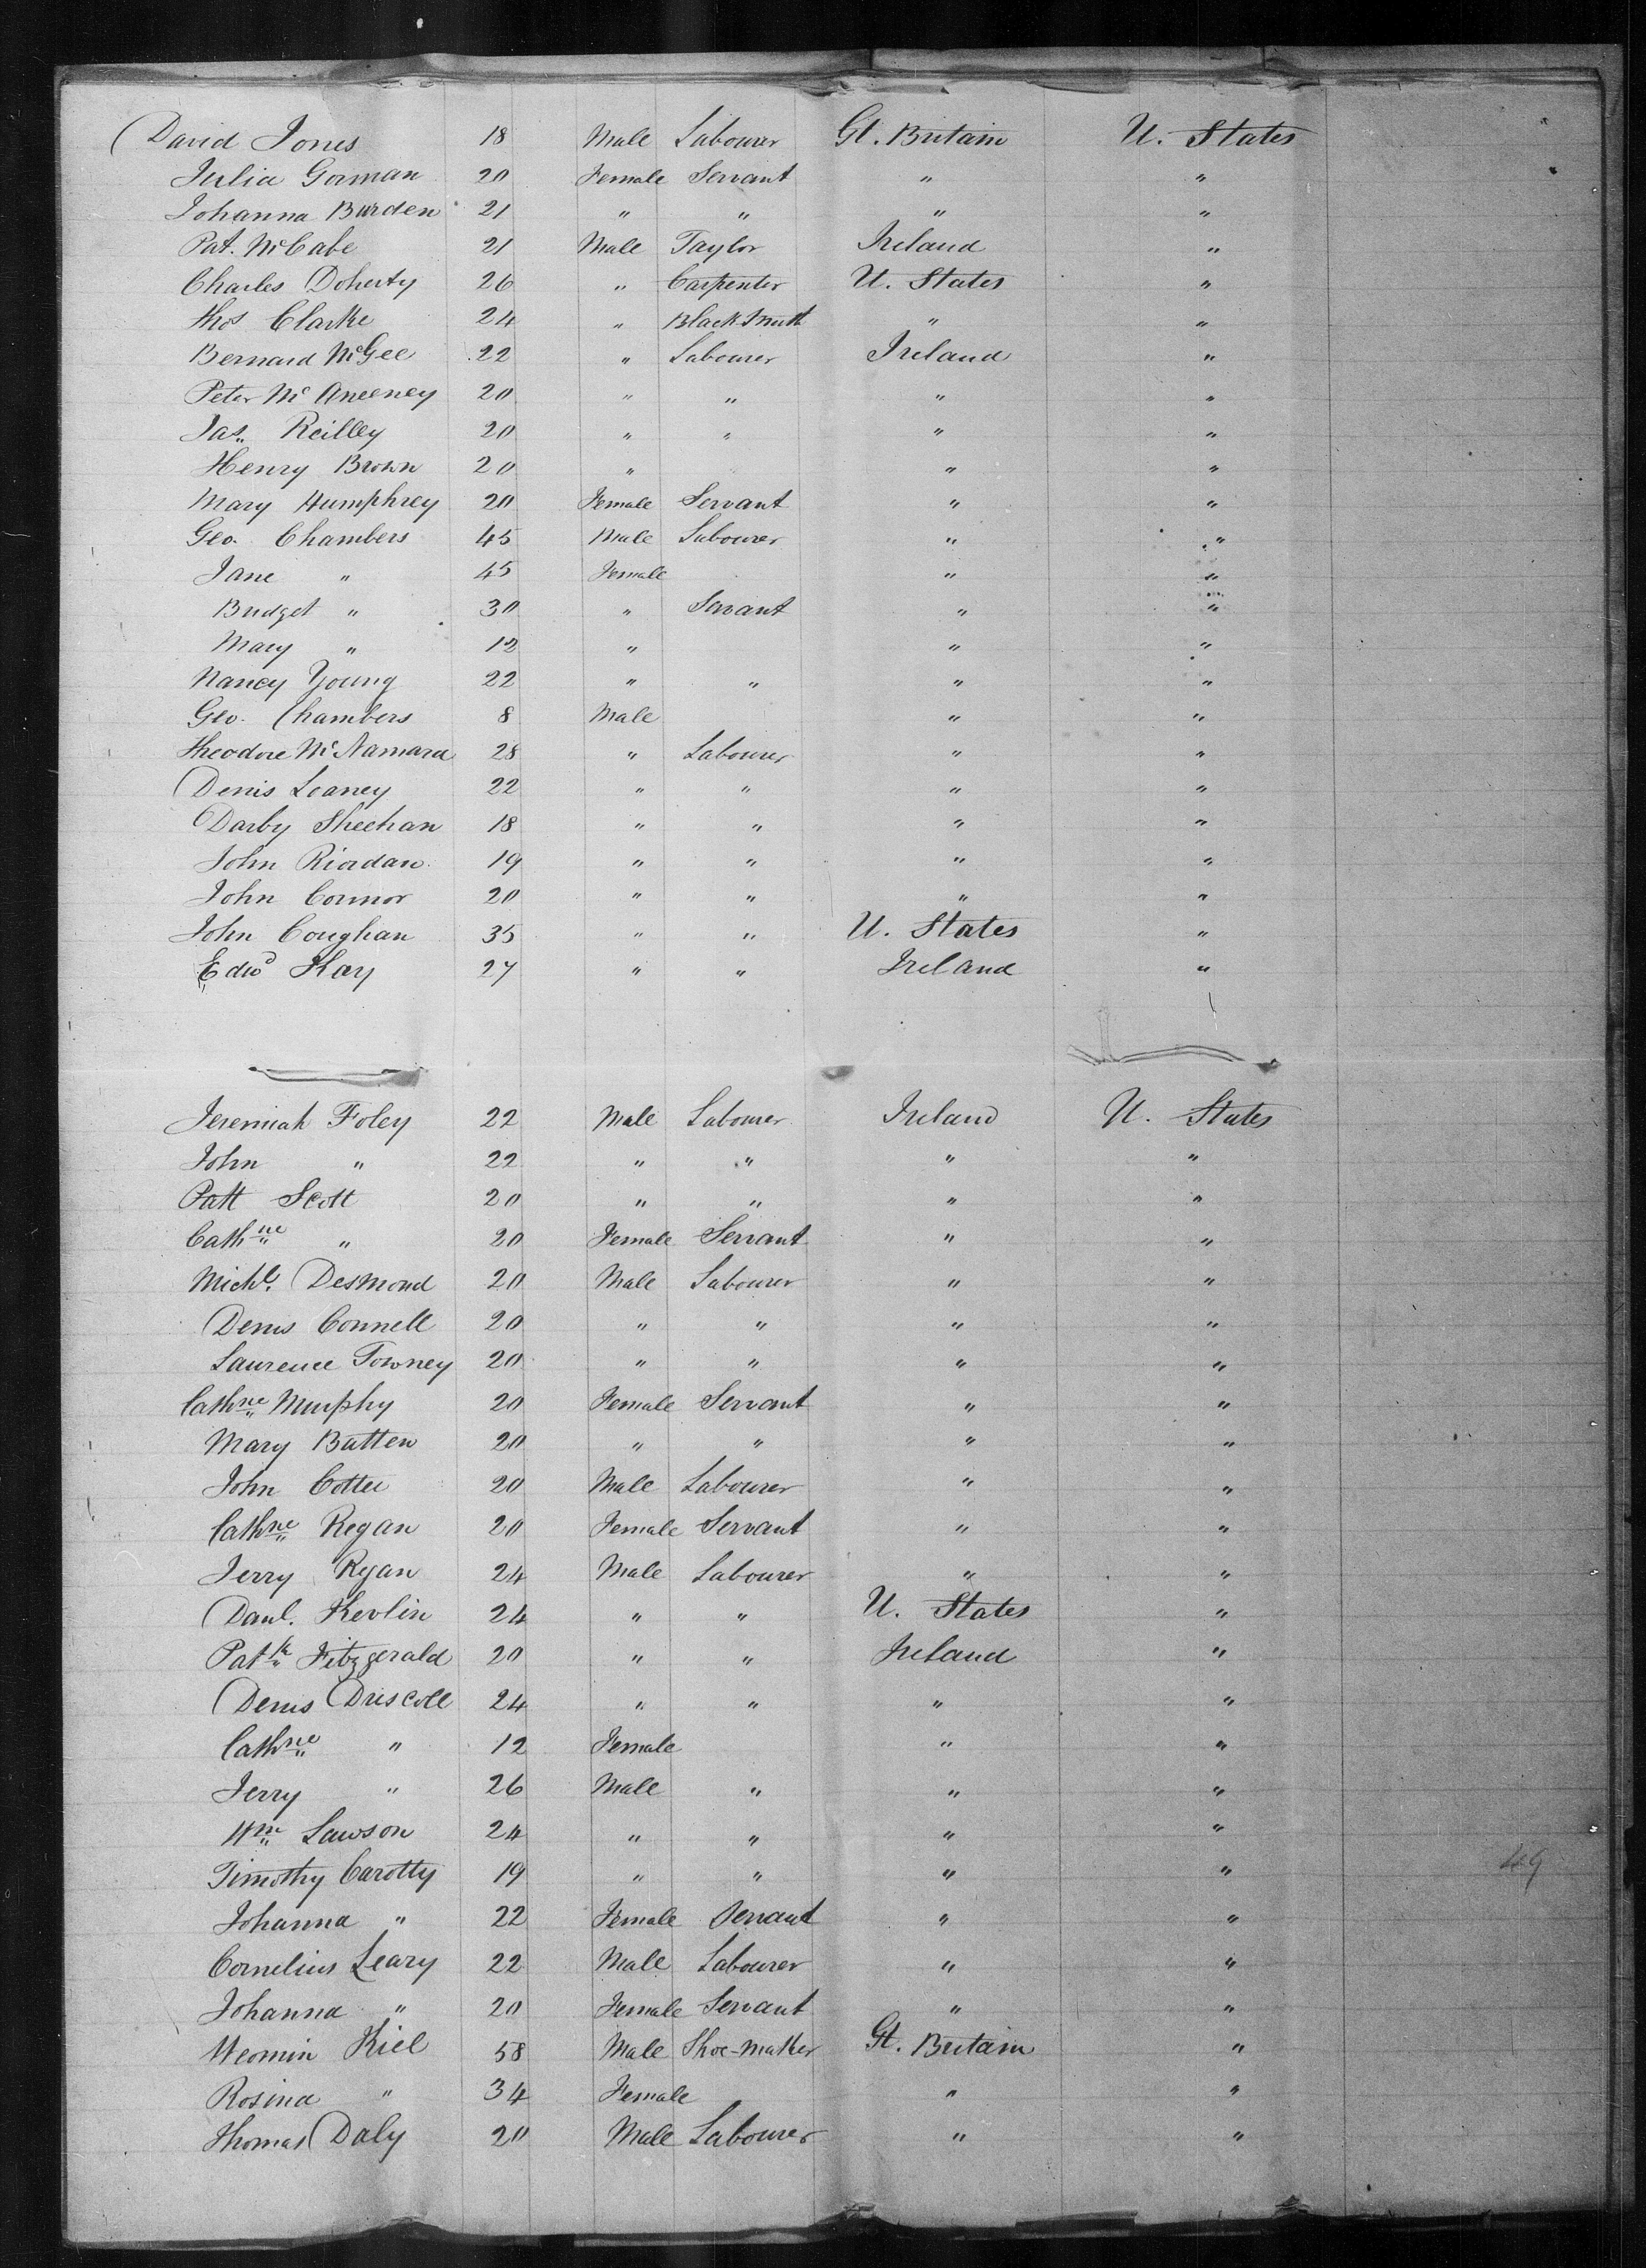 David Jones 18 Male Labourer Gt. Britain U. States
Julia Gorman 20 Female Servant " "
Johanna Burden 21 " " " "
Pat. McCabe 21 Male Taylor Ireland "
Charles Doherty 26 " Carpenter U. States "
Thos Clarke 24 " BlackSmith " "
Bernard McGee 22 " Labourer Ireland "
Peter Mc Aneeney 20 " " " "
Jas. Reilley 20 " " " "
Henry Brown 20 " " "
Mary Humphrey 20 Female Servant " "
Geo. Chambers 45 Male Labourer " "
Jane " 45 Female " "
Bridget " 30 " Servant " "
Mary " 12 " " "
Nancy Young 22 " " " "
Geo. Chambers 8 Male " "
Theodore McNamara 28 " Labourer " "
Denis Loaney 22 " " " "
Darby Sheehan 18 " " " "
John Riordan 19 " " " "
John Connor 20 " " " "
John Coughan 35 " " U. States "
Edwd Kay 27 " " Ireland "
Jeremiah Foley 22 Male Labourer Ireland U. States
John " 22 " " " "
Patt Scott 20 " " " "
Cathne " 20 Female Servant " "
Michl. Desmond 20 Male Labourer " "
Denis Connell 20 " " " "
Laurence Towney 20 " " " "
Cathne Murphy 20 Female Servant " "
Mary Batten 20 " " " "
John Cotter 20 Male Labourer " "
Cathne Regan 20 Female Servant " "
Jerry Regan 24 Male Labourer " "
Danl. Kevlin 24 " " U. States "
Patk Fitzgerald 20 " " Ireland "
Denis Driscoll 24 " " " "
Cathne " 12 Female " "
Jerry " 26 Male " " "
Wm Lawson 24 " " " "
Timothy Carotty 19 " " " "
Johanna " 22 Female Servant " "
Cornelius Leary 22 Male Labourer " "
Johanna " 20 Female Servant " "
Kiel 58 Male Shoe-maker Gt. Britain "
Rosina " 34 Female " "
Thomas Daly 20 Male Labourer " "
49